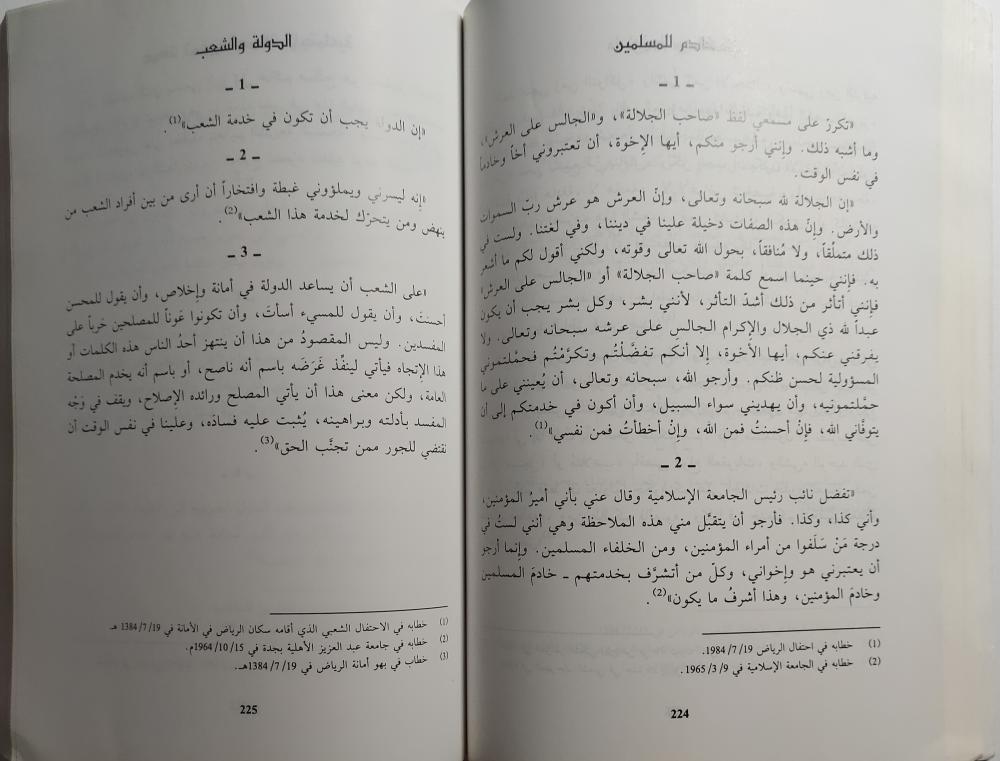 خادم للمسلمين
ـ 1 ـ
«تكررّ على مسمعي لفظ «صاحب الجلالة»، و«الجالس على العرش»،
وما أشبه ذلك. وإنني أرجو منكم، أيها الإخوة، أن تعتبروني أخاً وخادماً
في نفس الوقت.
«إن الجلالة لله سبحانه وتعالى، وإنّ العرش هو عرش ربّ السموات
والأرض. وإنّ هذه الصفات دخيلة علينا في ديننا، وفي لغتنا. ولست في
ذلك متملّقاً، ولا مُنافقاً، بحول الله تعالى وقوته، ولكني أقول لكم ما أشعر
به. فإنني حينما اسمع كلمة «صاحب الجلالة» أو «الجالس على العرش»
فإنني أتأثر من ذلك أشدّ التأثر، لأنني بشر، وكل بشر يجب أن يكون
عبداً لله ذي الجلال والإكرام الجالس على عرشه سبحانه وتعالى. ولا
يفرقني عنكم، أيها الأخوة، إلا أنكم تفضّلْتُم وتكرّمْتُم فحمّلتموني
المسؤولية لحسن ظنكم. وأرجو الله، سبحانه وتعالى، أن يُعينني على ما
حمّلتمونيه، وأن يهديني سواء السبيل، وأن أكون في خدمتكم إلى أن
يتوفّاني الله، فإنْ أحسنتُ فمن الله، وإنْ أخطأتُ فمن نفسي»(1).
ـ 2 ـ
«تفضل نائب رئيس الجامعة الإسلامية وقال عني بأني أميرُ المؤمنين،
وأني كذا، وكذا. فأرجو أن يتقبَّل مني هذه الملاحظة وهي أنني لستُ في
درجة مَنْ سَلَفوا من أمراء المؤمنين، ومن الخلفاء المسلمين. وإنما أرجو
أن يعتبرني هو وإخواني، وكلّ من أتشرَّف بخدمتهم ـ خادمَ المسلمين
وخادمَ المؤمنين، وهذا أشرفُ ما يكون»(2).
(1) خطابه في احتفال الرياض 19/7/1984.
(2) خطابه في الجامعة الإسلامية في 9/3/1965.
224
الدولة والشعب
ـ 1 ـ
«إن الدولة يجب أن تكون في خدمة الشعب»(1).
ـ 2 ـ
«إنه ليسرني ويملؤوني غبطة وافتخاراً أن أرى من بين أفراد الشعب من
ينهض ومن يتحرّك لخدمة هذا الشعب»(2).
ـ 3 ـ
«على الشعب أن يساعد الدولة في أمانة وإخلاص، وأن يقول للمحسن
أحسنتَ، وأن يقول للمسيء أسأتَ، وأن تكونوا عَوناً للمصلحين حَرباً على
المفسدين. وليس المقصودُ من هذا أن ينتهز أحدُ الناس هذه الكلمات أو
هذا الإتجاه فيأتي لينفّذ غَرَضَه باسم أنه ناصح، أو باسم أنه يخدم المصلحة
العامة، ولكن معنى هذا أن يأتي المصلح ورائده الإصلاح، ويقف في وَجْه
المفسد بأدلته وبراهينه، يُثبت عليه فسادَه، وعلينا في نفس الوقت أن
نقتضي للجور ممن تجنَّب الحق»(3).
(1) خطابه في الاحتفال الشعبي الذي أقامه سكان الرياض في الأمانة في 19/7/1384 هـ
(2) خطابه في جامعة عبد العزيز الأهلية بجدة في 15/10/1964م.
(3) خطاب في بهو أمانة الرياض في 19/7/1384هـ.
225